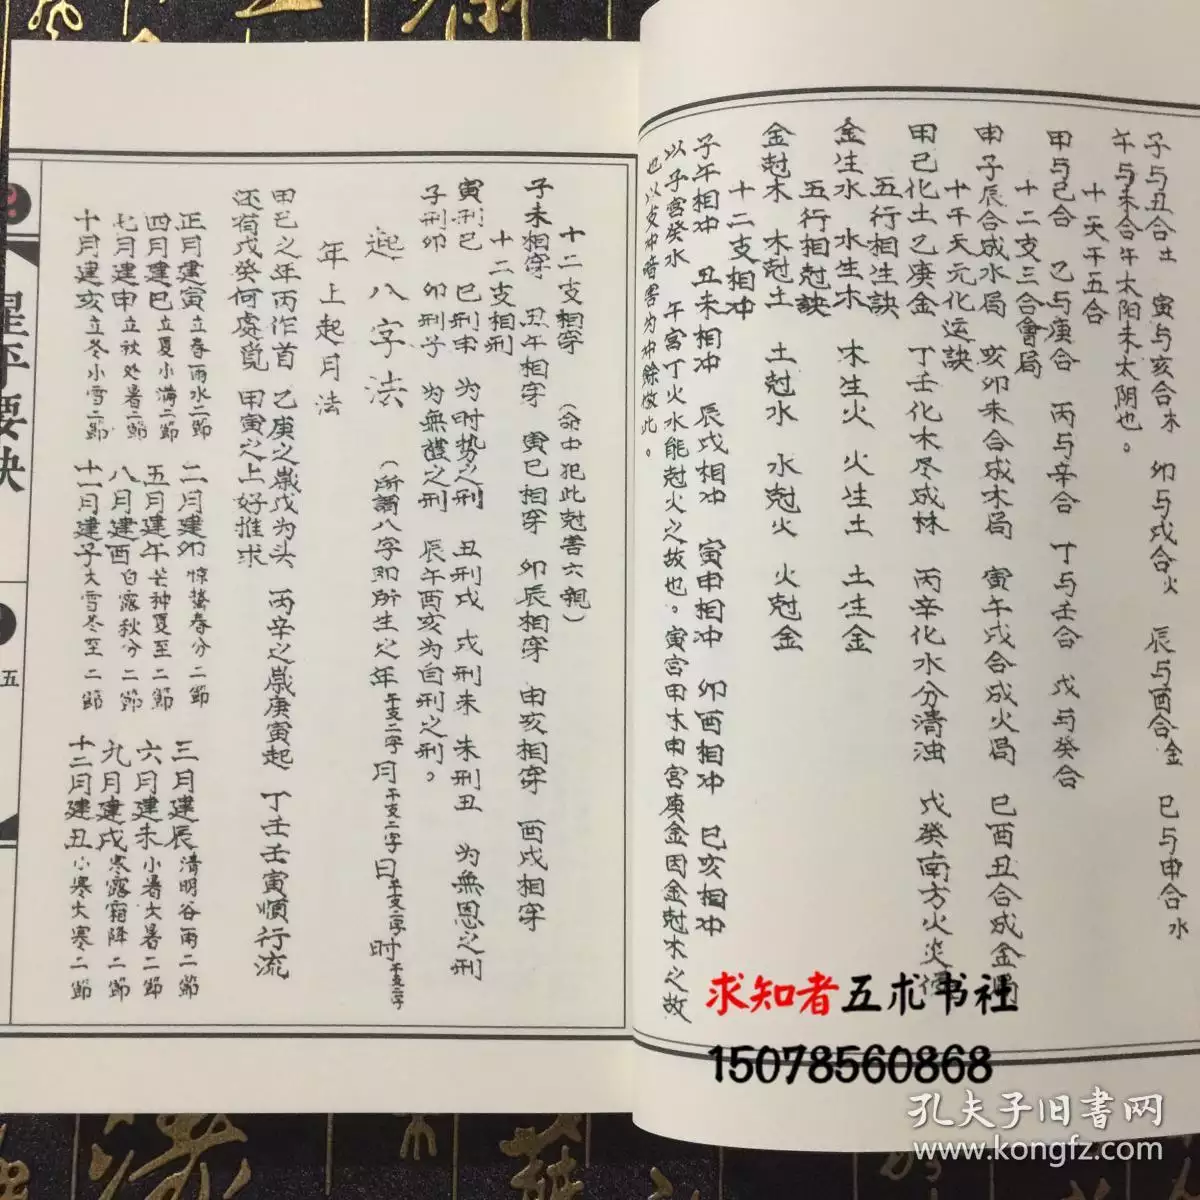 子与丑合土 寅与亥合木 卯与戌合火 辰与酉合金 巳与申合水
午与未合午太阳未太阴也。
十天干五合
甲与己合 乙与庚合 丙与辛合 丁与壬合 戊与癸合
十二支三合會局
申子辰合成水局 亥卯未合成木局 寅午戌合成火局 巳酉丑合成金局
十干天元化运訣
甲己化土乙庚金 丁壬化木尽成林 丙辛化水分清浊 戊癸南方火炎
五行相生訣
金生水 水生木 木生火 火生土 土生金
五行相尅訣
金尅木 木尅土 土尅水 水尅火 火尅金
十二支相冲
子午相冲 丑未相冲 辰戌相冲 寅申相冲 卯酉相冲 巳亥相冲
以子宫癸水 午宫丁火水能尅火之故也。寅宫甲木申宫庚金因金尅木之故
也以支冲暗害为冲餘倣此。
十二支相穿 (命中犯此尅害六親)
子未相穿 丑午相穿 寅巳相穿 卯辰相穿 申亥相穿 酉戌相穿
十二支相刑
寅刑巳 巳刑申 为时势之刑 丑刑戌 戌刑未 未刑丑 为無恩之刑
子刑卯 卯刑子 为無禮之刑 辰午酉亥为自刑之刑。
起八字法 (所謂八字即所生之年干支二字月干支二字日干支二字时干支二字
年上起月法
甲己之年丙作首 乙庚之歲戊为头 丙辛之歲庚寅起 丁壬壬寅順行流
还有戊癸何處覓 甲寅之上好推求
正月建寅立春雨水二節 二月建卯惊蟄春分二節 三月建辰清明谷雨二節
四月建巳立夏小满二節 五月建午芒种夏至二節 六月建未小暑大暑二節
七月建申立秋处暑二節 八月建酉白露秋分二節 九月建戌寒露霜降二節
十月建亥立冬小雪二節 十一月建子大雪冬至二節 十二月建丑小寒大寒二節
星平要诀
五
求知者五术书社
15078560868
孔夫子旧書网
www.kongfz.com